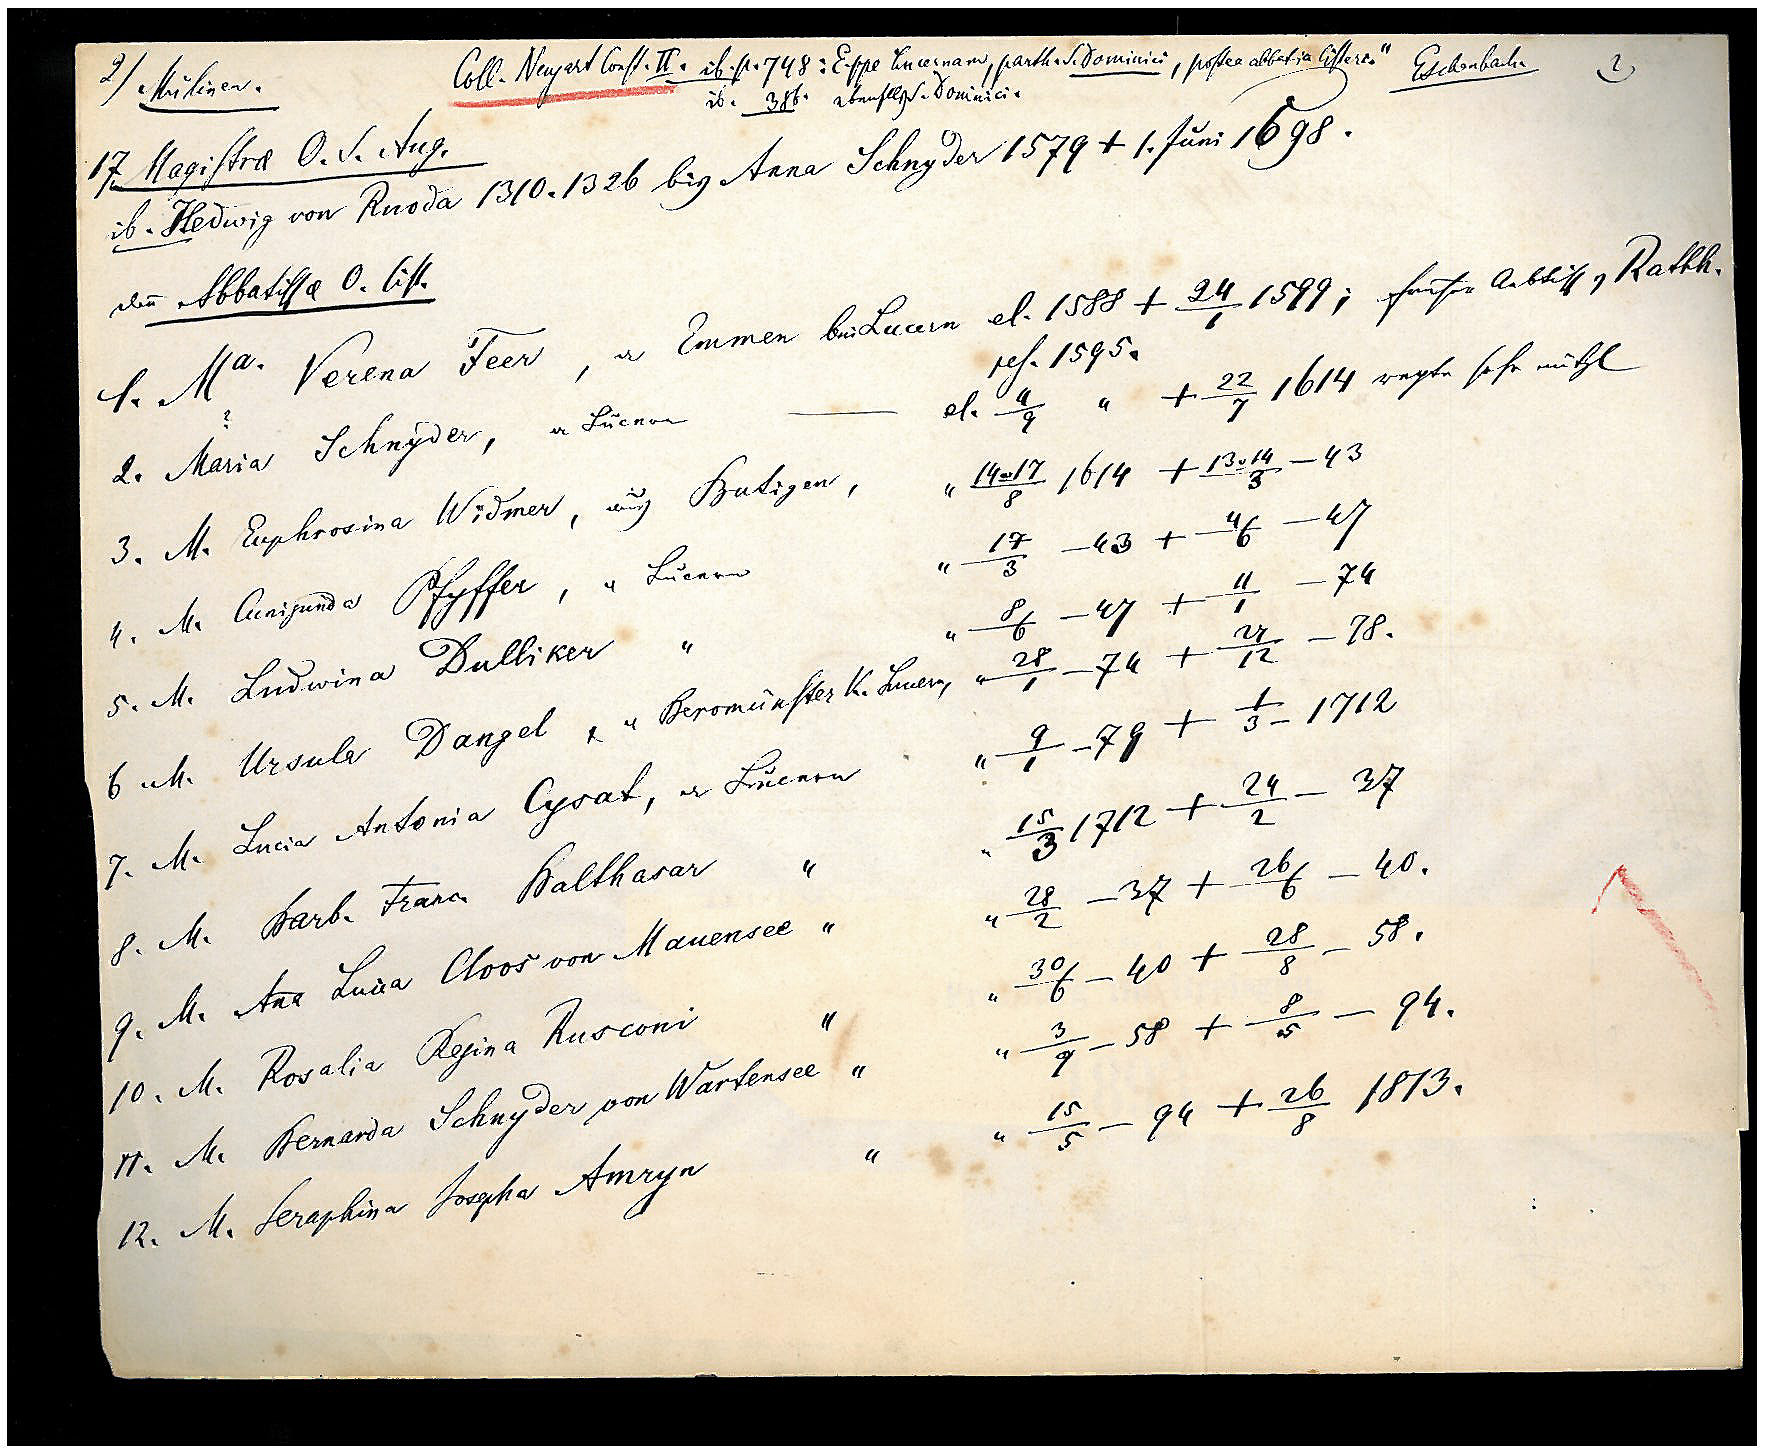 2/ Mülinen. Coll. Neugart Const. II. ib. p. 748: E. ppe Lucernam, parth. S. Dominici, postea abbatia Cisterc." Eschenbach. 2
ib. 386. ebenflls S. Dominici.
17 Magistræ O. S. Aug.
ib. Hedwig von Ruoda 1310. 1326 bis Anna Schnyder 1579 + 1. Juni 1698.
dann Abbatissæ O. Cist.
1. Ma. Verena Feer, v Emmen bei Lucern el. 1588 + 24/1 1599; früher Aebtiss. v Rathh.
res. 1595.
2. Maria ? Schnyder, v Lucern — el. 4/9 " + 22/7 1614 regte sehr nützl
3. M. Euphrosina Widmer, aus Butigen, " 14 o 17/8 1614 + 13 o 14/3 – 43
4. M. Cunigunda Pfyffer, v Lucern " 17/3 – 43 + 4/6 – 47
5. M. Ludwina Dulliker " " 8/6 – 47 + 11/1 – 74
6 M. Ursula Dangel, v Beromünster K. Lucern, " 28/1 – 74 + 27/12 – 78.
7. M. Lucia Antonia Cysat, v Lucern " 9/1 – 79 + 1/3 – 1712
8. M. Barb. Franc. Balthasar " " 15/3 1712 + 24/2 – 37
9. M. Ana Lucia Cloos von Mauensee " " 28/2 – 37 + 26/6 – 40.
10. M. Rosalia Regina Rusconi " " 30/6 – 40 + 28/8 – 58.
11. M. Bernarda Schnyder von Wartensee " " 3/9 – 58 + 8/5 – 94.
12. M. Seraphina Josepha Amryn " " 15/5 – 94 + 26/8 1813.